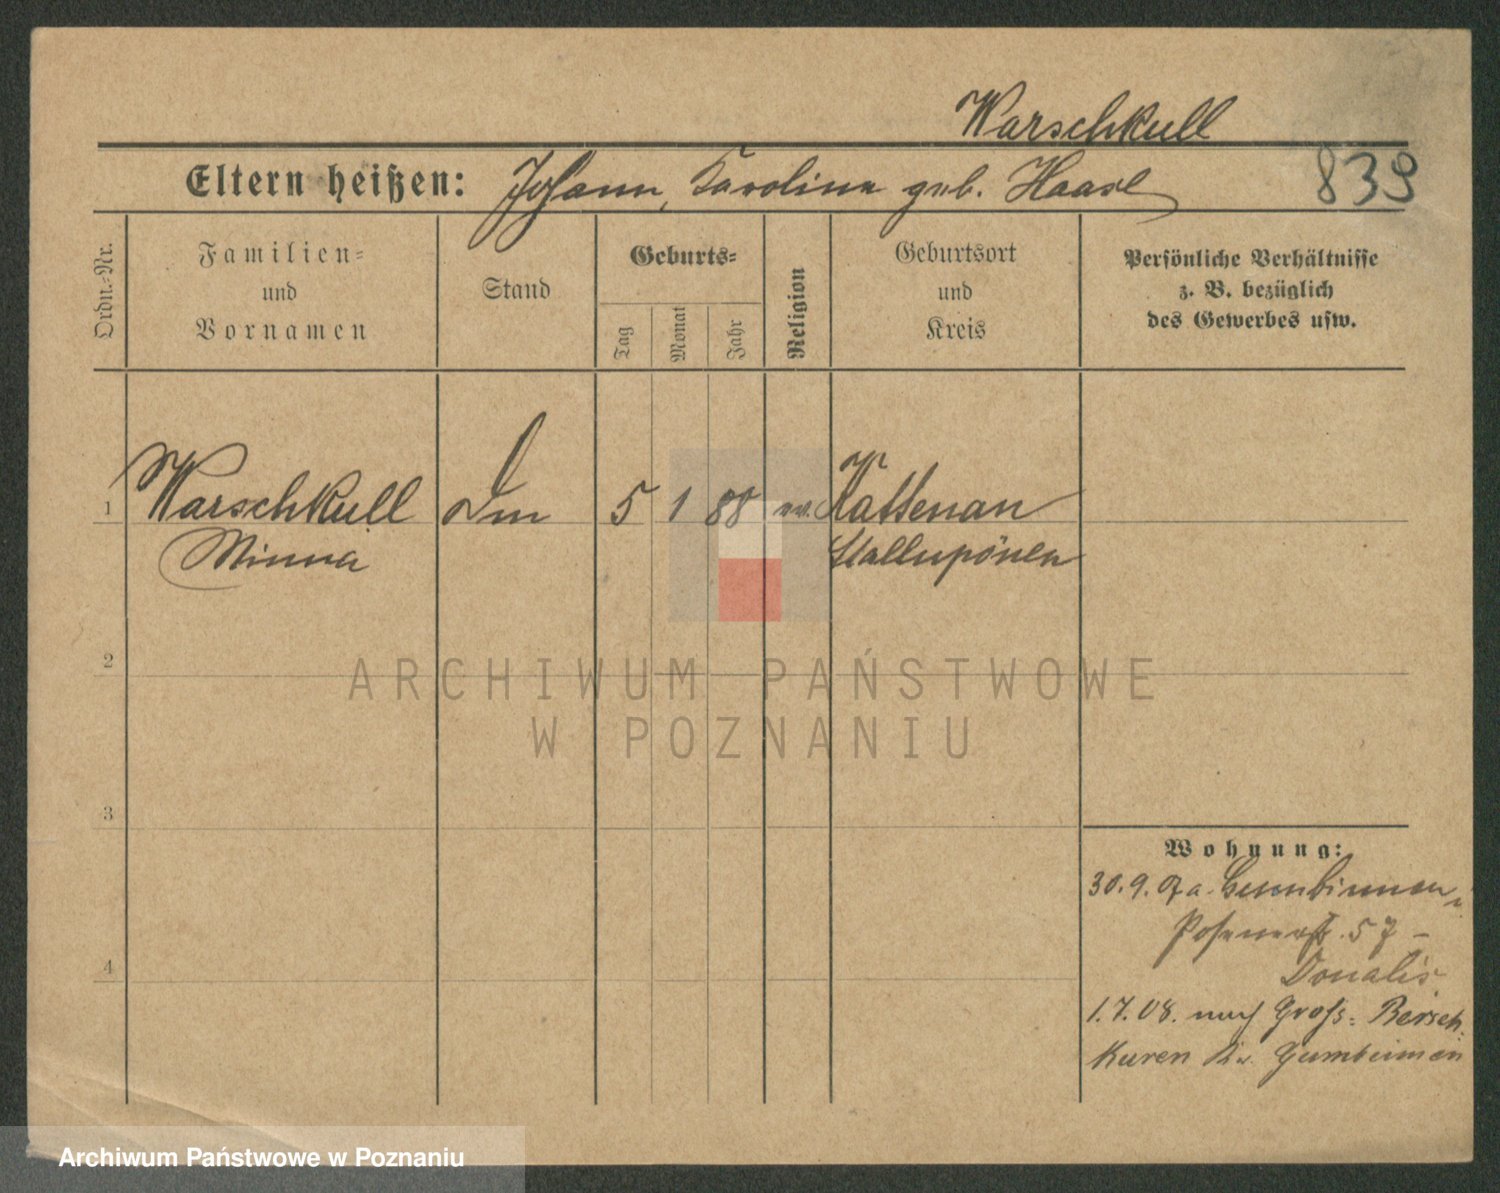 Warschkull
Eltern heißen: Johann, Karoline geb. Haase
839
Ordn.-Nr.
Familien-
und
Vornamen
Stand
Geburts-
Tag
Monat
Jahr
Religion
Geburtsort
und
Kreis
Persönliche Verhältnisse
z. B. bezüglich
des Gewerbes usw.
1 Warschkull 5 1 88 ev. Kattenau
Minna Stallupönen
2
ARCHIWUM PAŃSTWOWE
W POZNANIU
3
4
Wohnung:
30.9.07 a. Gumbinnen,
Posenerstr. 57 –
Donalis
1.7.08. nach Groß-Bersch
kuren Kr. Gumbinnen
Archiwum Państwowe w Poznaniu